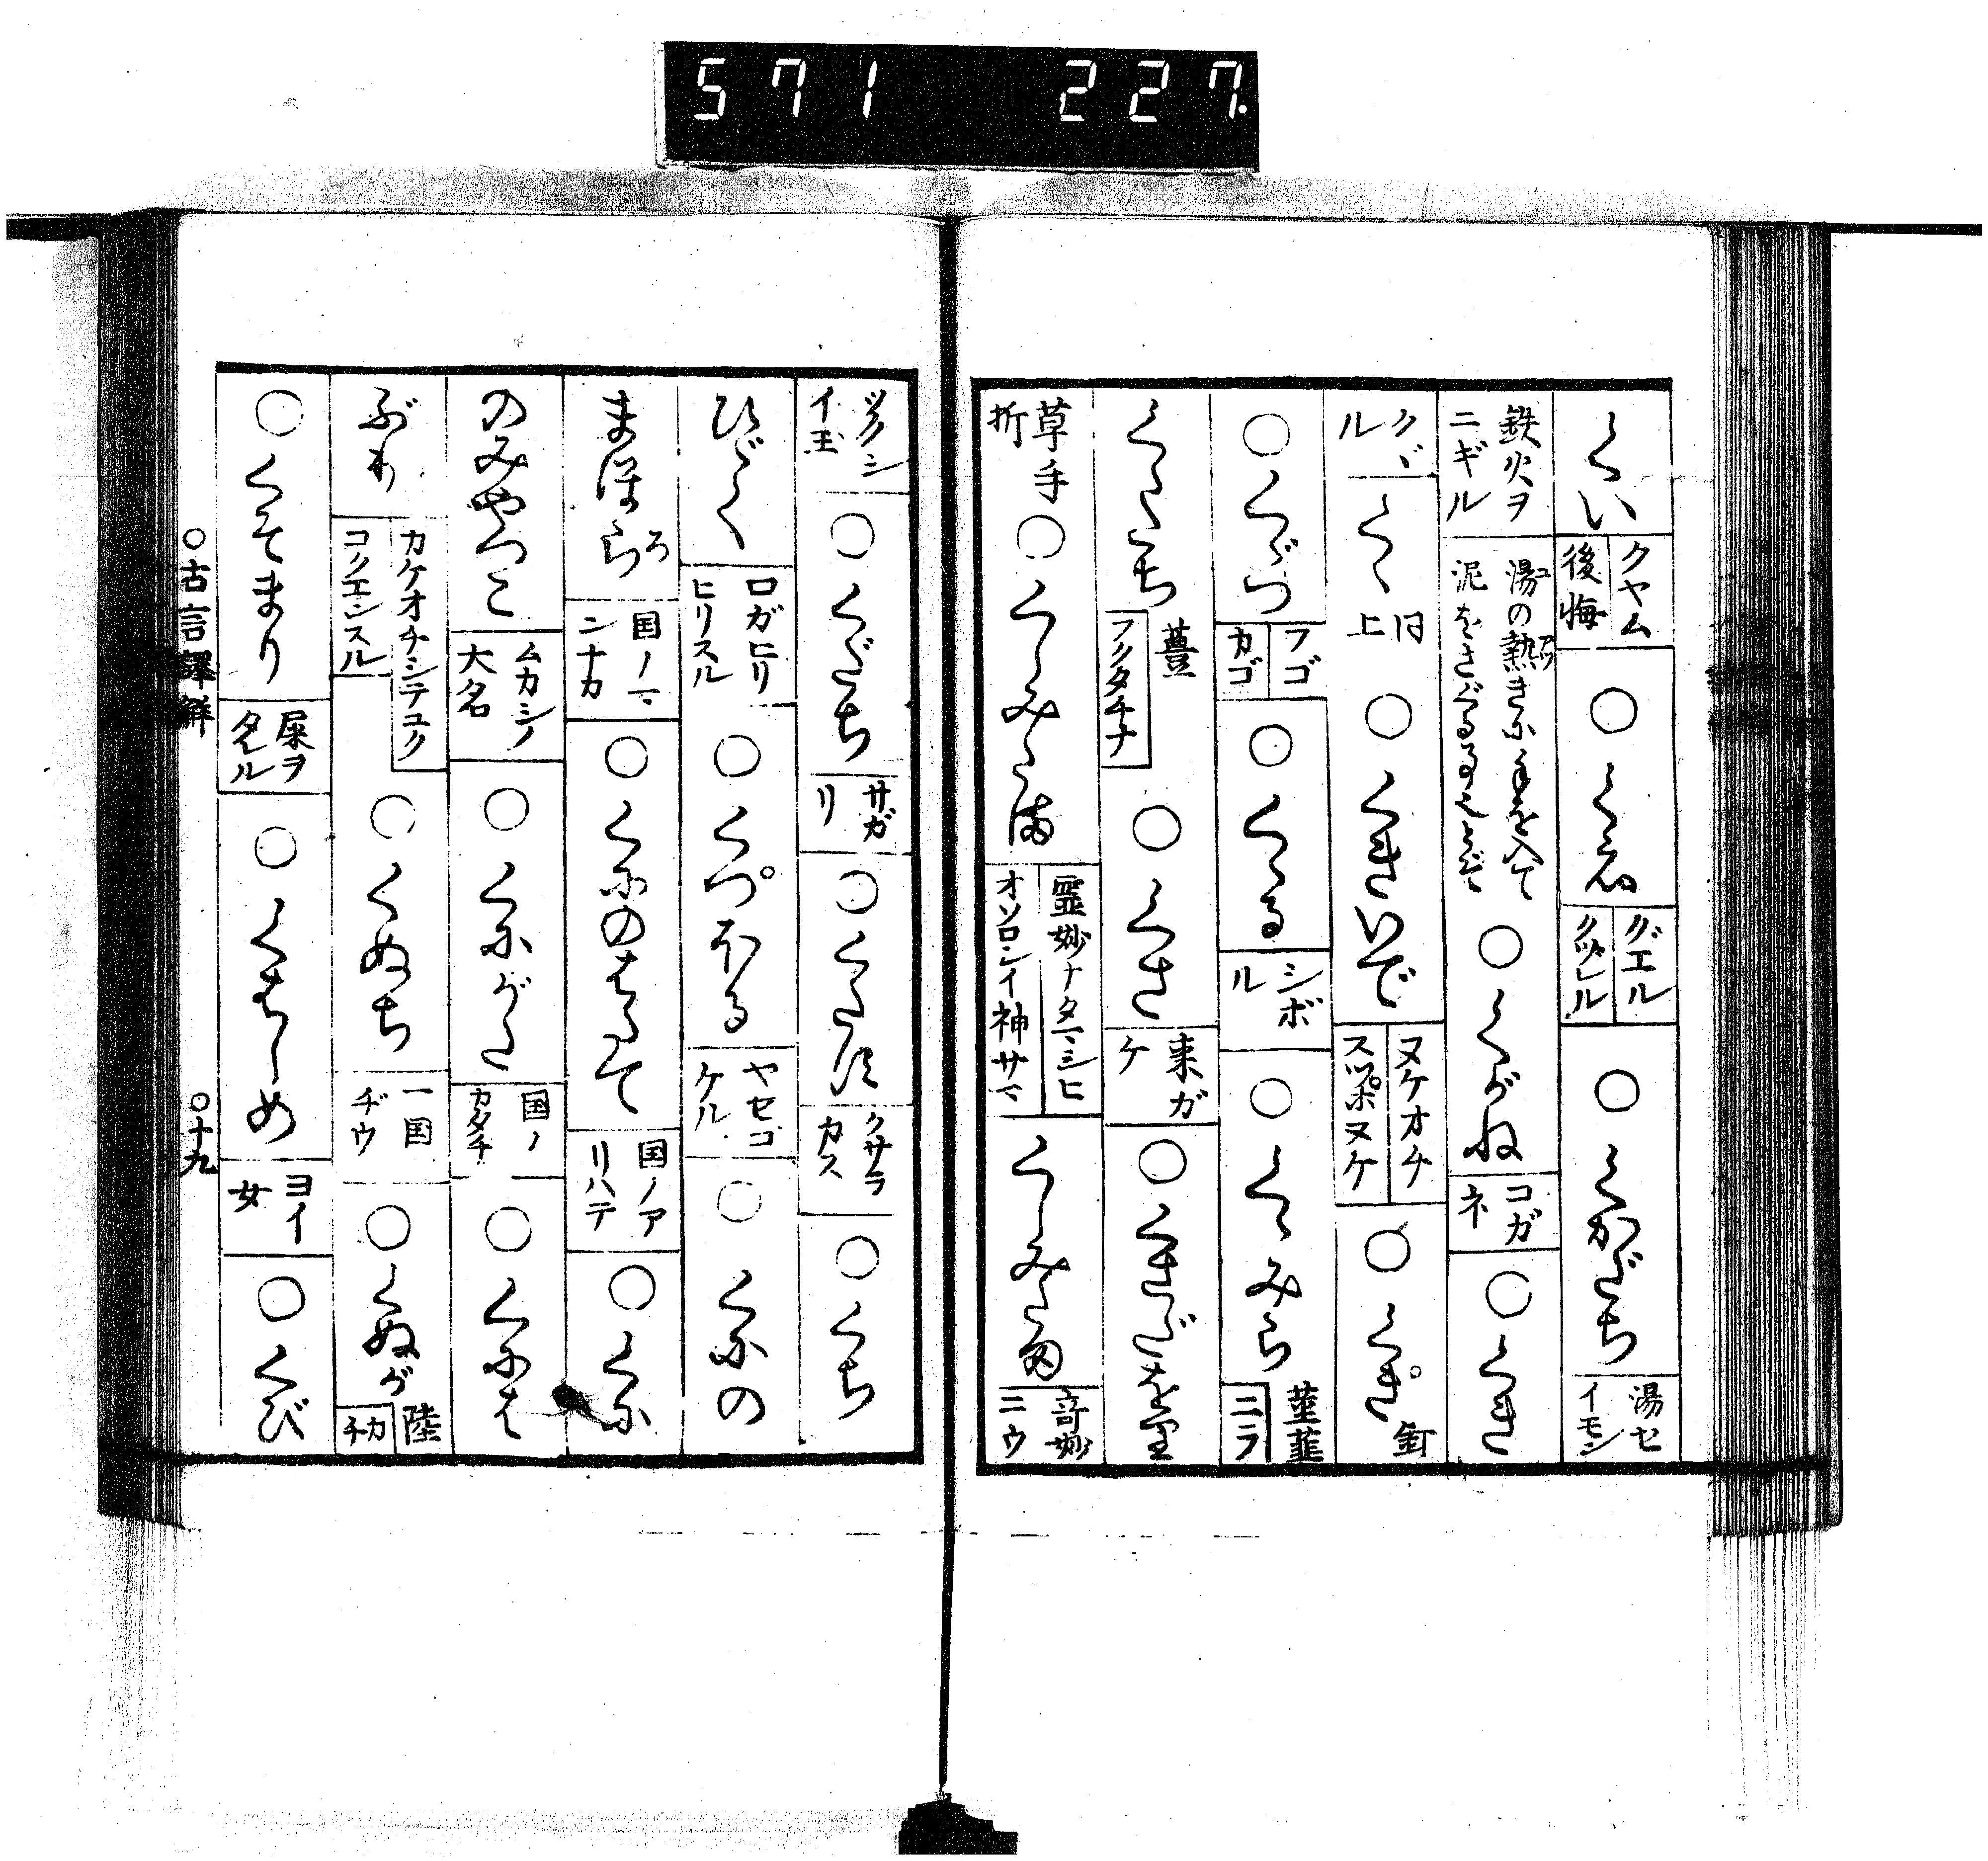 571 227.
くい クヤム 後悔 ○くえ グエル クヅレル ○くかだち 湯セイモン
鉄火ヲニギル 湯の熱きに手を入て泥をさぐる ○くがね コガネ ○くき
クヾル くゝ 同上 ○くきいで ヌケオチ スツポヌケ ○くぎ 釘
○くゞつ フゴ カゴ ○くゝる シボル ○くゝみら 莖韮 ニラ
くゝたち 薹 フクタチナ ○くさ 来ガケ ○くさだをり
草手折 ○くしみたま 霊妙ナタマシヒ オソロシイ神サマ くしみたま 奇妙ニウ
ツクシイ玉 ○くだち サガリ ○くたす クサラカス ○くち
ひゞく 口ガヒリヒリスル ○くづほる ヤセコケル ○くにの
まほら ろ 国ノマンナカ ○くにのはたて 国ノアリハテ ○くに
のみやつこ ムカシノ大名 ○くにがた 国ノカタチ ○くには
ぶり カケオチシテユク コクエンスル ○くぬち 一国ヂウ ○くぬが 陸 カチ
○くそまり 屎ヲタレル ○くはしめ ヨイ女 ○くび
○古言譯解 ○十九